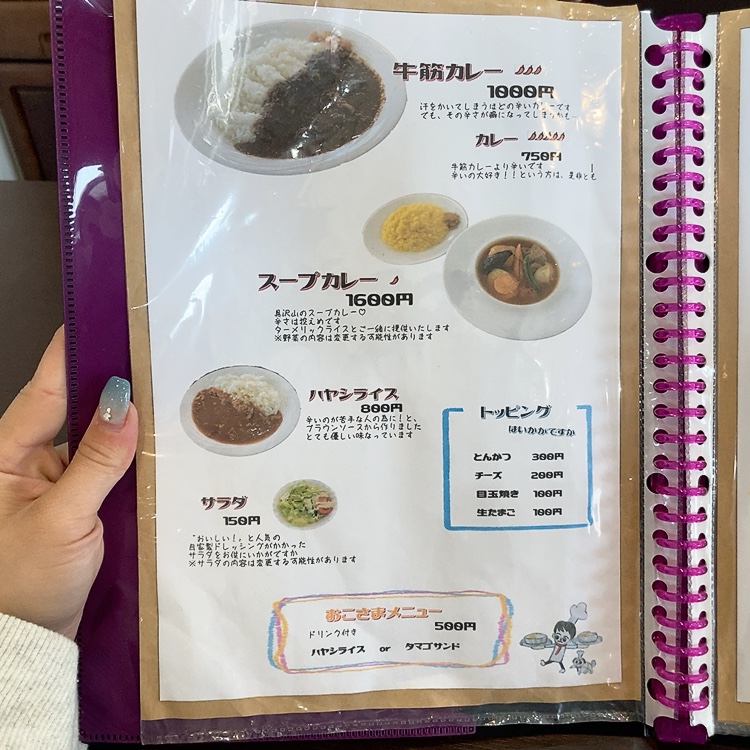 牛筋カレー
1000円
汗をかいてしまうほどの辛いカレーです
でも、その辛さが癖になってしまうかも…
カレー
750円
牛筋カレーより辛いです
辛いの大好き！！という方は、是非とも
スープカレー
1600円
具沢山のスープカレー♡
辛さは控えめです
ターメリックライスとご一緒に提供いたします
※野菜の内容は変更する可能性があります
ハヤシライス
800円
辛いのが苦手な人の為に！と、
ブラウンソースから作りました
とても優しい味なっています
トッピング
はいかがですか
とんかつ 300円
チーズ 200円
目玉焼き 100円
生たまご 100円
サラダ
150円
"おいしい！"と人気の
自家製ドレッシングがかかった
サラダをお供にいかがですか
※サラダの内容は変更する可能性があります
おこさまメニュー
500円
ドリンク付き
ハヤシライス or タマゴサンド